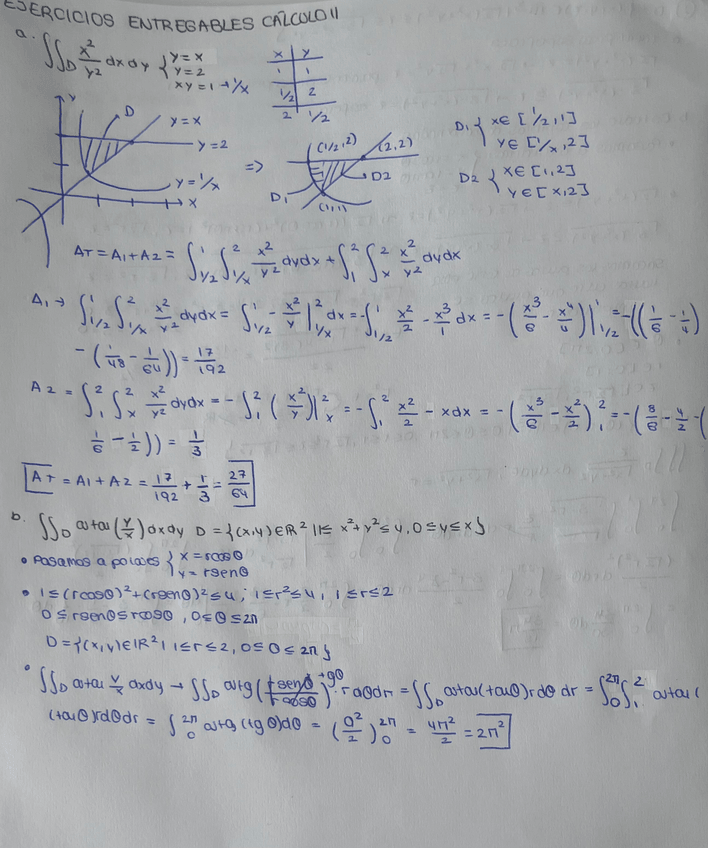 EJERCICIOS ENTREGABLES CÁLCULO II
a. ∬_D x²/y² dx dy { y = x
y = 2
xy = 1 → 1/x
x | y
1 | 1
1/2 | 2
2 | 1/2
y
D
y = x
y = 2
y = 1/x
x
=>
(1/2, 2)
(2,2)
D2
D1
(1,1)
D1 { x ∈ [1/2, 1]
y ∈ [1/x, 2]
D2 { x ∈ [1, 2]
y ∈ [x, 2]
AT = A1 + A2 = ∫_{1/2}^{1} ∫_{1/x}^{2} x²/y² dydx + ∫_{1}^{2} ∫_{x}^{2} x²/y² dydx
A1 → ∫_{1/2}^{1} ∫_{1/x}^{2} x²/y² dydx = ∫_{1/2}^{1} - x²/y |_{1/x}^{2} dx = -∫_{1/2}^{1} x²/2 - x³/1 dx = -(x³/6 - x⁴/4)|_{1/2}^{1} = -((1/6 - 1/4)
- (1/48 - 1/64)) = 17/192
A2 = ∫_{1}^{2} ∫_{x}^{2} x²/y² dydx = - ∫_{1}^{2} (x²/y)|_{x}^{2} = -∫_{1}^{2} x²/2 - x dx = -(x³/6 - x²/2)_{1}^{2} = -(8/6 - 4/2 - (
1/6 - 1/2)) = 1/3
AT = A1 + A2 = 17/192 + 1/3 = 27/64
b. ∬_D arctan(y/x) dxdy D = {(x,y) ∈ ℝ² | 1 ≤ x² + y² ≤ 4, 0 ≤ y ≤ x}
• Pasamos a polares { x = rcosθ
y = rsenθ
• 1 ≤ (rcosθ)² + (rsenθ)² ≤ 4; 1 ≤ r² ≤ 4, 1 ≤ r ≤ 2
0 ≤ rsenθ ≤ rcosθ, 0 ≤ θ ≤ 2π
D = {(x,y) ∈ ℝ² | 1 ≤ r ≤ 2, 0 ≤ θ ≤ 2π}
• ∬_D arctan y/x dxdy → ∬_D arctg(rsenθ/rcosθ)^{tgθ} · r dθdr = ∬_D arctan(tanθ)r dθ dr = ∫_{0}^{2π} ∫_{1}^{2} arctan(
(tanθ)rdθdr = ∫_{0}^{2π} arctg(tgθ)dθ = (θ²/2)_{0}^{2π} = 4π²/2 = 2π²